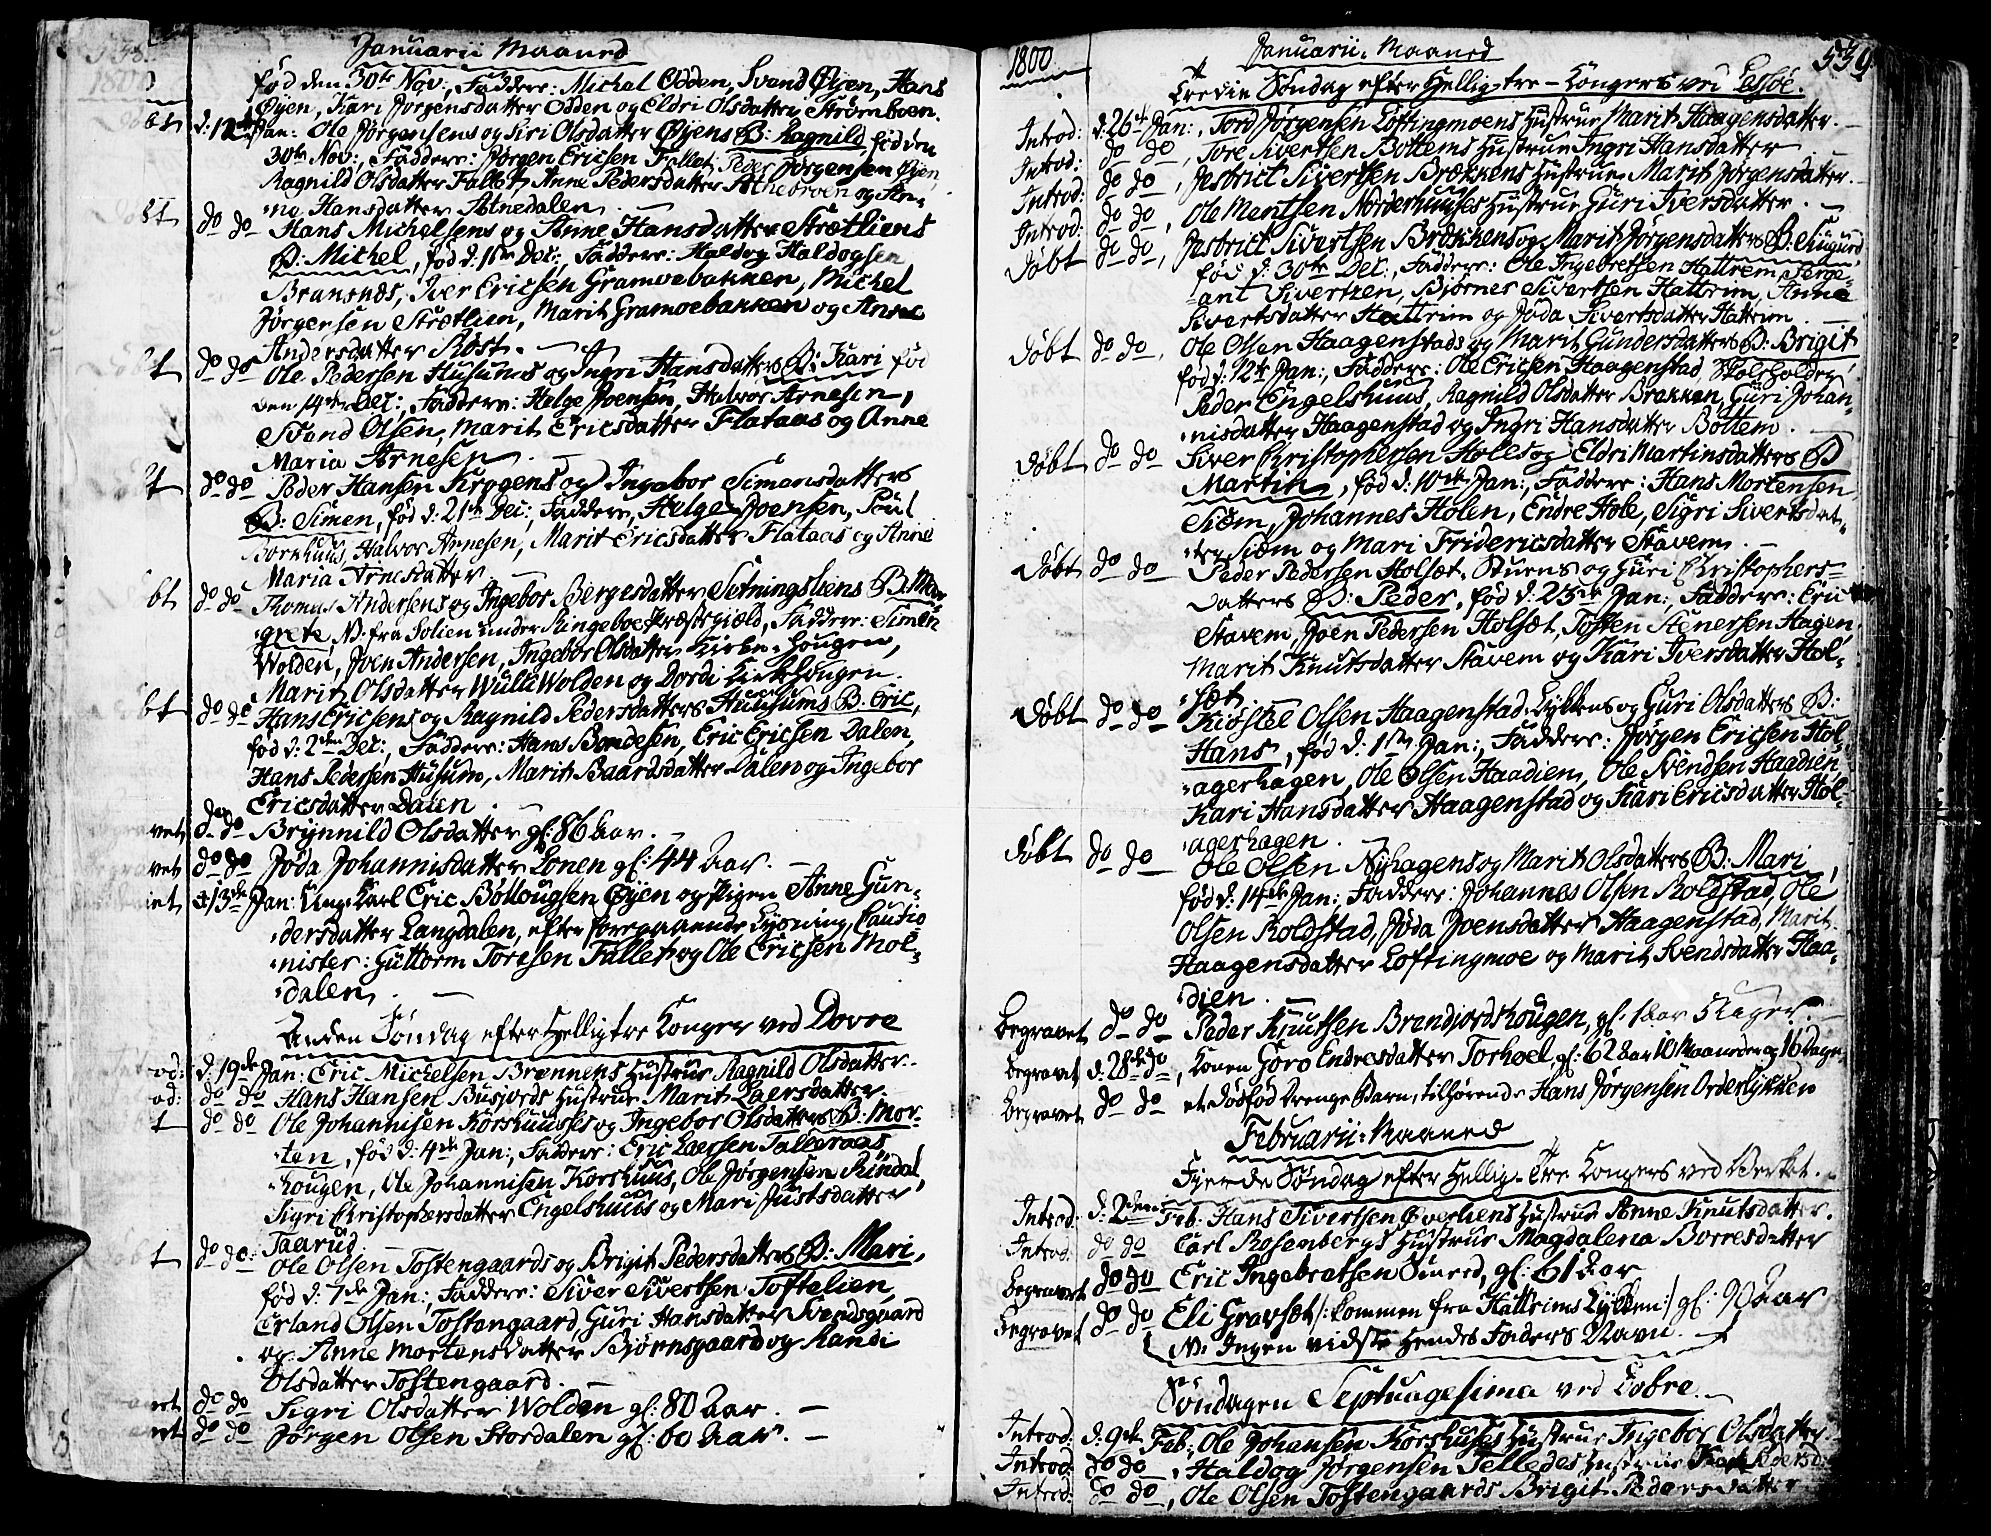 538.
1800
Januarii Maaned
fød den 30te Nov:, Faddere: Michel Odden, Svend Øyen, Hans
Øyen, Kari Jørgensdatter Odden og Eldri Olsdatter Strømboen.
bt d: 12te Jan: Ole Jørgensens og Siri Olsdatter Øyens B: Ragnild, fød den
30te Nov:, Faddere: Jørgen Ericsen Fallet, Peder Jørgensen Øyen,
Ragnild Olsdatter Fallet, Anne Pedersdatter og An-
-ne Hansdatter
bt do do Hans Michelsens og Anne Hansdatter Strætliens
B: Michel, fød d: 1ste Dec:, Faddere: Haldog Haldogsen
Bransnæs, Iver Ericsen Gramoebakken, Michel
Jørgensen Strætlien, Marit Gramoebakken og Anne
Andersdatter Rost.
bt do do Ole Pedersen Husums og Ingri Hansdatters B: Kari fød
den 14de Dec:, Faddere: Helge Joensen, Halvor Arnesen,
Svend Olsen, Marit Ericsdatter Flataas og Anne
Maria Arnesen
bt do do Peder Hansen Krogens og Ingebor Simensdatters
B: Simen, fød d: 21de Dec:, Faddere, Helge Joensen, Poul
Borkhuus, Halvor Arnesen, Marit Ericsdatter Flataas og Anne
Maria Arnesdatter
bt do do Thomas Andersens og Ingebor Bergesdatter Setningsliens B: Mar-
-grete, NB: fra Solien under Ringeboe Præstegield, Faddere: Simen
Wolden, Joen Andersen, Ingebor Olsdatter Kirke-Hougen,
Marit Olsdatter Wulli Wolden og Dordi Kirkehougen.
bt do do Hans Ericsens og Ragnild Pedersdatters Huusums B: Eric,
fød d: 2den Dec:, Faddere: Hans Bondesen, Eric Ericsen Dalen,
Hans Pedersen Husum, Marit Baardsdatter Dalen og Ingebor
Ericsdatter Dalen.
vet do do Brynnild Olsdatter gl: 86 Aar.
vet do do Jøda Johannisdatter Lonen gl: 44 Aar.
iet d: 13de Jan: Ung-Karl Eric Bøttougsen Øyen og Pigen Anne Gun-
-dersdatter Langdalen, efter foregaaende Lysning, Cautio-
-nister: Guttorm Toresen Fallet og Ole Ericsen Mol-
-dalen.
Anden Søndag efter Hellig tre Konger ved Dovre
od: d: 19de Jan: Eric Michelsen Brennens Hustrue Ragnild Olsdatter.
od: do do Hans Hansen Busjords Hustrue Marit Laersdatter.
t do do Ole Johannisen Korshuuses og Ingebor Olsdatters B: Mor-
-ten, fød d: 4de Jan:, Faddere: Eric Laersen Talleraas-
-hougen, Ole Johannisen Korshuus, Ole Jørgensen Rindal,
Sigri Christophersdatter Engelshuus og Mari Justsdatter
Taarud
t do do: Ole Olsen Tostengaards og Brigit Pedersdatters B: Mari,
fød d: 7de Jan:, Faddere: Siver Sivertsen Toftelien,
Erland Olsen Tostengaard, Guri Hansdatter Svendsgaard
og Anne Mortensdatter Bjørnsgaard og Randi
Olsdatter Tostengaard.
vet do do Sigri Olsdatter Wolden gl: 80 Aar.
vet do do Jørgen Olsen Stordalen gl: 60 Aar.
1800 Januarii-Maaned 539
Tredie Søndag efter Hellig-tre-Kongers ved Lessøe.
Introd: d: 26de Jan:, Tord Jørgensen Loftingmoens Hustrue Marit Haagensdatter.
Introd: do do, Tore Sivertsen Bottems Hustrue Ingri Hansdatter
Introd: do do, Jestrict Sivertsen Brækkens Hustrue Marit Jørgensdatter
Introd: do do, Ole Mentsen Norderhuuses Hustrue Guri Iversdatter.
Døbt do do, Jestrict Sivertsen Brækkens og Marit Jørgensdatters B: Siugurd,
fød d: 30te Dec:, Faddere: Ole Ingebretsen Hattrem, Serge-
-ant Sivertzen, Bjørnes Sivertsen Hattrim, Anne
Sivertsdatter Hattrim og Jøda Sivertsdatter Hattrim
Døbt do do, Ole Olsen Haagenstads og Marit Gundersdatters B: Brigit
fød d: 12te Jan:, Faddere: Ole Ericsen Haagenstad, Skoleholder
Peder Engelshuus, Ragnild Olsdatter Brækken, Guri Johan-
-nisdatter Haagenstad og Ingri Hansdatter Bottem.
Døbt do do Siver Christophersen Holes og Eldri Martinsdatters B
Martin, fød d: 10de Jan:, Faddere: Hans Mortensen
Siæm, Johannes Holen, Endre Hole, Sigri Sivertsdat-
-ter Siæm og Mari Fridericsdatter Stavem.
Døbt do do Peder Pedersen Holsæt-Stuens og Guri Christophers-
datters B: Peder, fød d: 23de Jan:, Faddere: Eric
Stavem, Joen Pedersen Holsæt, Tosten Stenersen Hagen,
Marit Knutsdatter Stavem og Kari Iversdatter Hol-
-sæt
Døbt do do Kiøstel Olsen Haagenstad-Lykkens og Guri Olsdatters B:
Hans, fød d: 1ste Jan:, Faddere: Jørgen Ericsen Hol-
-agerhagen, Ole Olsen Haadien, Ole Svendsen Haadien
Kari Hansdatter Haagenstad og Kari Ericsdatter Hol-
-agerhagen.
Døbt do do Ole Olsen Nyhagens og Marit Olsdatters B: Mari,
fød d: 14de Jan:, Faddere: Johannes Olsen Roldstad, Ole
Olsen Roldstad, Jøda Joensdatter Haagenstad, Marit
Haagensdatter Loftingmoe og Marit Svendsdatter Haa-
-dien.
Begravet do do Peder Knutsen Brendjordshougen, gl: 1 Aar 5 Uger.
Begravet d: 28de do, Konen Goro Endresdatter Torhoel, gl: 62 Aar 10 Maaneder og 16 Dage.
Begravet do do et dødfød Drenge-Barn, tilhørende Hans Jørgensen Orderlykken
Februarii-Maaned
Fjerde Søndag efter Hellig-Tre Kongers ved Verket.
Introd: d: 2den Feb: Hans Sivertsen Øverliens Hustrue Anne Knutsdatter.
Introd: do do Carl Rosenbergs Hustrue Magdalena Borresdatter
Begravet do do Eric Ingebretsen gl: 61 Aar
Begravet do do Eli Gravsæt /: kommen fra Hattrims Lykken :/ gl: 90 Aar
NB: Ingen vidste hendes Faders Navn.
Søndagen Septuagesima ved Dovre.
Introd: d: 9de Feb: Ole Johansen Korshuses Hustrue Ingebor Olsdatter
Introd: do do, Haldog Jørgensen Telledes Hustrue Pedersd:
Introd: do do, Ole Olsen Tostengaards Brigit Pedersdatter